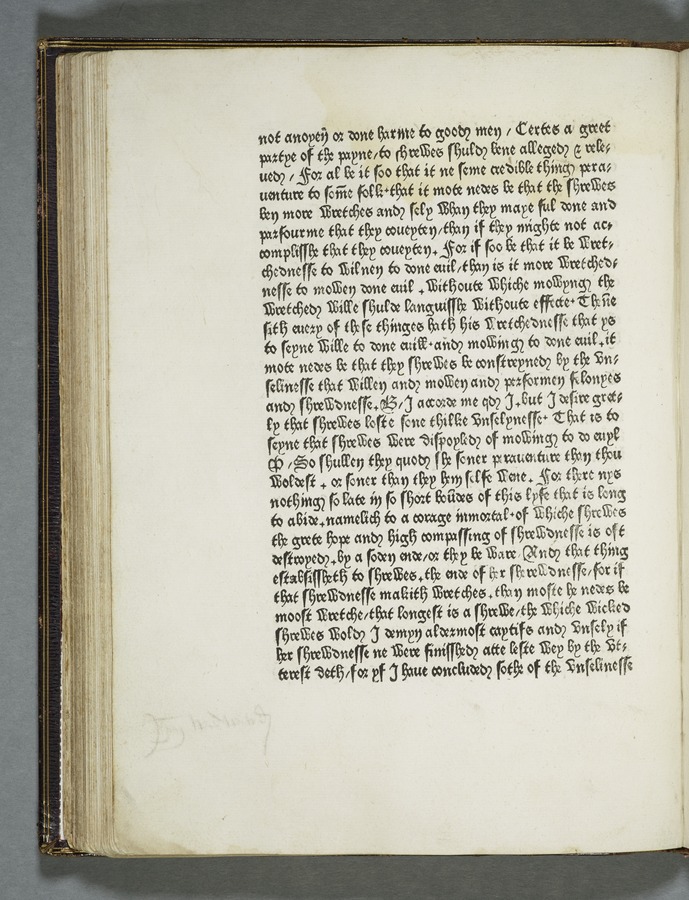 not anoyen̄ or done harme to good men / Certes a greet
partye of the payne / to shrewes shuld bene alleged & rele⸗
ued / For al be it soo that it ne seme credible thing pera⸗
uenture to som̄e folk · that it mote nedes be that the shrewes
ben more wretches and sely whan they maye ful done and
parfourme that they coueyten / than if they mighte not ac⸗
complisshe that they coueyten . For if soo be that it be wret⸗
chednesse to wilnen to done euil / than is it more wretched⸗
nesse to mowen done euil . withoute whiche mowyng the
wretched wille shulde languisshe withoute effecte · Then̄e
sith euery of these thinges hath his wretchednesse that ys
to seyne wille to done euill · and mowing to done euil . it
mote nedes be that they shrewes be constreyned by the vn⸗
selinesse that willen and mowen and performen felonyes
and shrewdnesse . B / I acorde me qd I . but I desire gret⸗
ly that shrewes loste sone thilke vnselynesse · That is to
seyne that shrewes were dispoyled of mowing to do euyl
P / So shullen they quod she soner perauenture than thou
woldest . or soner than they hem selfe wene . For there nys
nothing so late in so short boūdes of this lyfe that is long
to abide . namelich to a corage inmortal · of whiche shrewes
the grete hope and high compassing of shrewdnesse is oft
destroyed . by a soden ende / or they be ware And that thing
establissheth to shrewes . the ende of her shrewdnesse / for if
that shrewdnesse makith wretches . than moste he nedes be
moost wretche / that longest is a shrewe / the whiche wicked
shrewes wold I demyn aldermost caytifs and vnsely if
her shrewdnesse ne were finisshed atte leste wey by the vt⸗
terest deth / for yf I haue concluded sothe of the vnselinesse